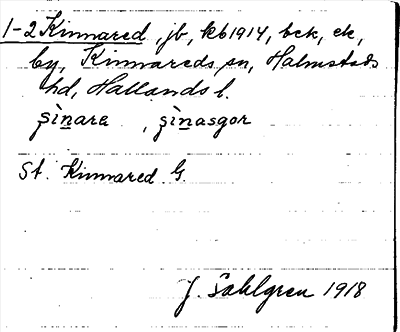 1-2 Kinnared, jb, kb1914, bck, ek,
by, Kinnareds sn, Halmstads
hd, Hallands l.
şìnara , şìnasgor
St. Kinnared G.
J. Sahlgren 1918